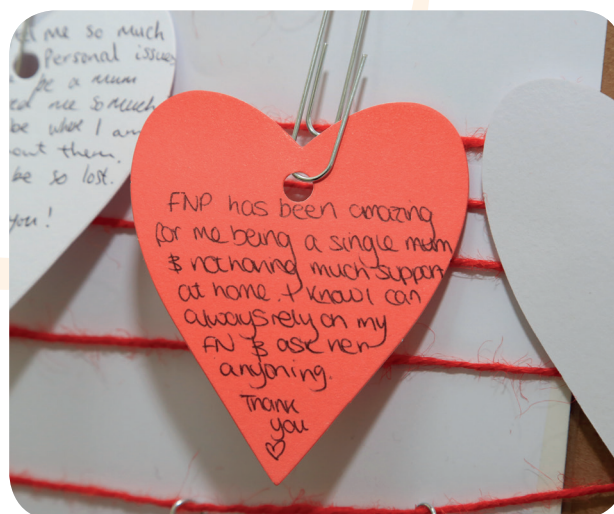 ed me so much
Personal issues
be a mum
ed me so much
be who I am
out them.
be so lost.
you!
FNP has been amazing
for me being a single mum
& not having much support
at home. I know I can
always rely on my
FN & ask her
anything.
Thank
you
♡